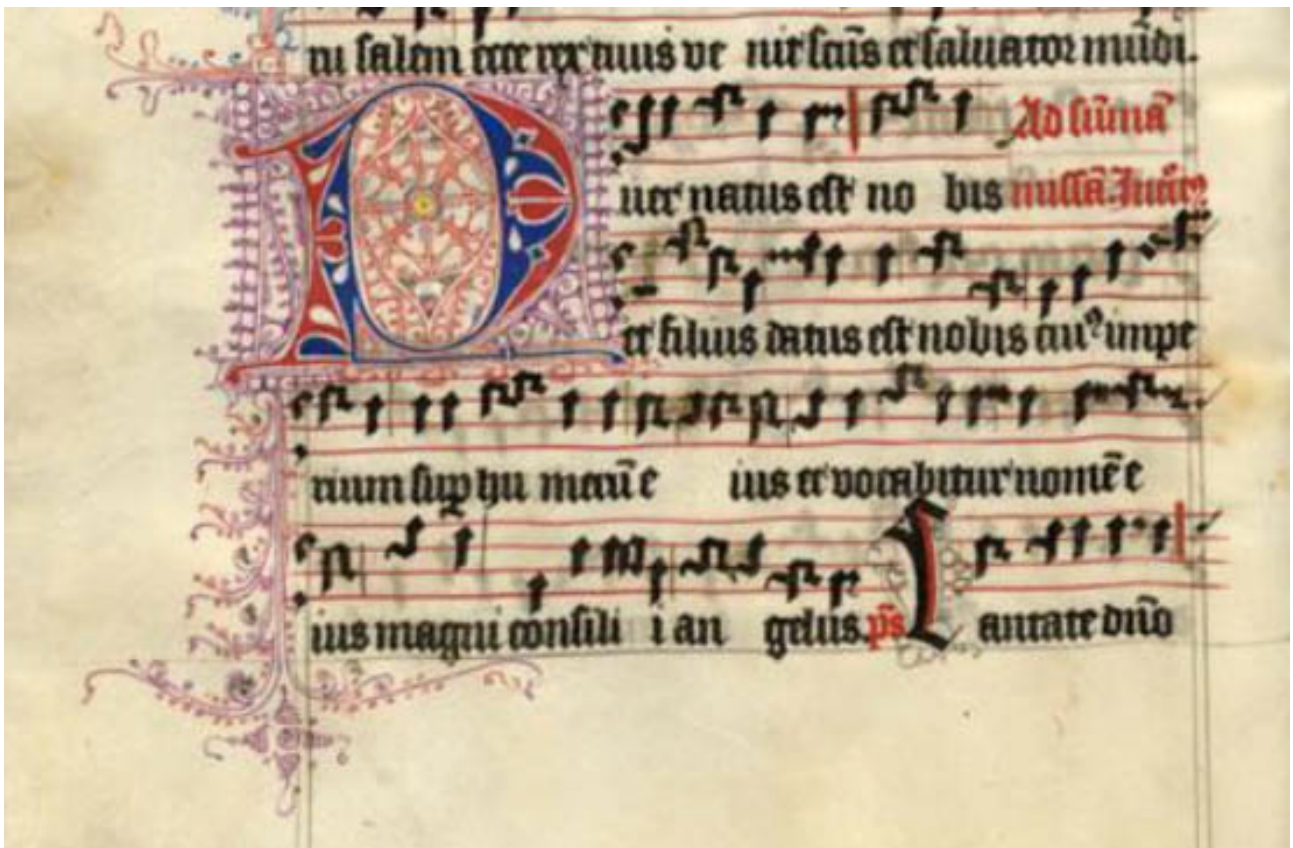 ru salem ecce rex tuus ve nit scūs et saluator mūdi.
Puer natus est no bis Ad sūmā missā. Introit᷒
et filius datus est nobis cui᷒ impe
rium suꝑ hu merū e ius et vocabitur nomē e
ius magni consili i an gelus. ps̄ Cantate dn̄o